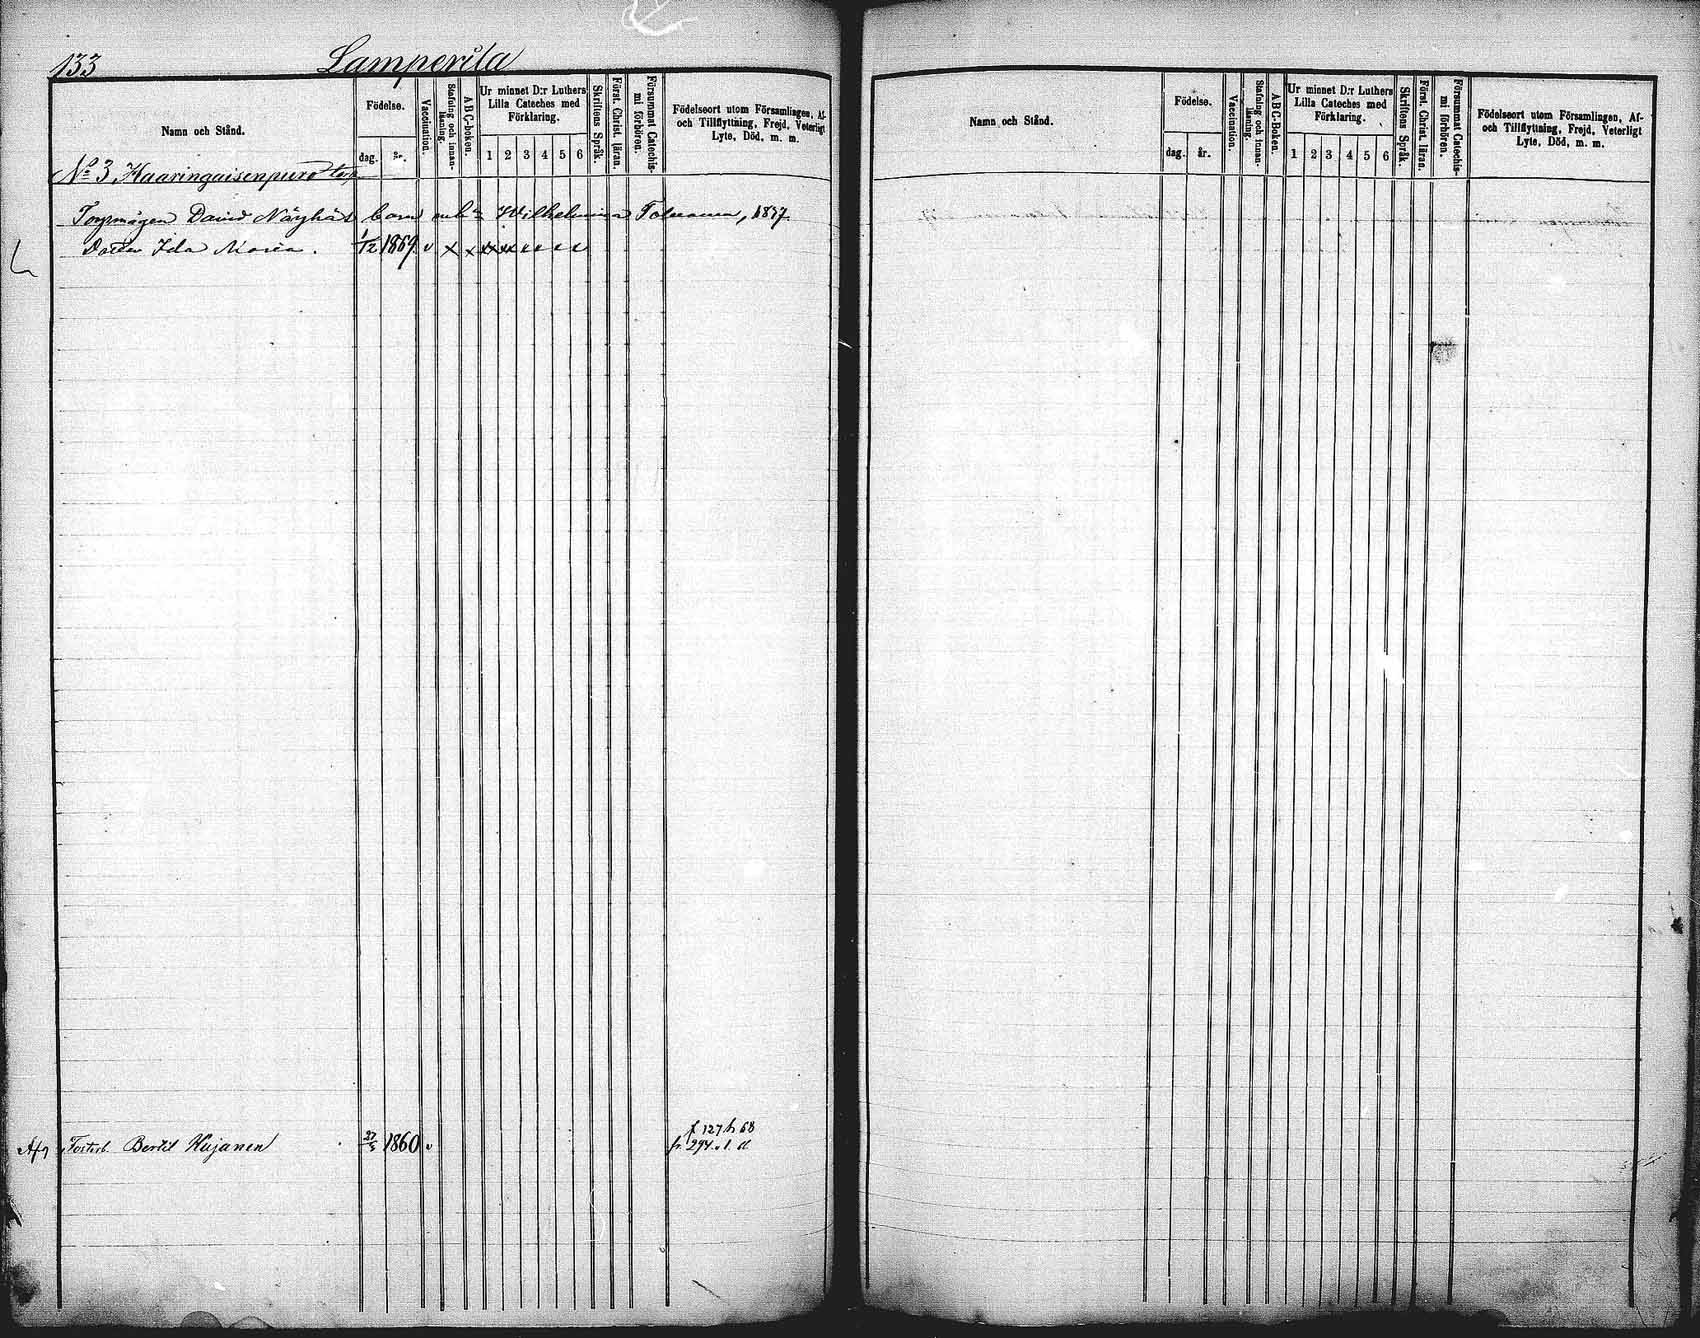 133 Lamperila
Namn och Stånd.
Födelse.
dag. år.
Vaccination.
Stafning och innan-
läsning.
ABC-boken.
Ur minnet D:r Luthers
Lilla Cateches med
Förklaring.
1 2 3 4 5 6
Skriftens Språk.
Först. Christ. läran.
Försummat Catechis-
mi förhören.
Födelseort utom Församlingen, Af-
och Tillflyttning, Frejd, Veterligt
Lyte, Död, m. m.
No 3, Haaringaisenpuro torp
David barn Wilhelmina 1837
Dotter Ida Maria. 1/12 1869. v x x x x x x x x
Fosterb. Bertil Kujanen 27/5 1860 v
f 127 h 68
fr. 294. v. l. d
Namn och Stånd.
Födelse.
dag. år.
Vaccination.
Stafning och innan-
läsning.
ABC-Boken.
Ur minnet D:r Luthers
Lilla Cateches med
Förklaring.
1 2 3 4 5 6
Skriftens Språk.
Först. Christ. läran.
Försummat Catechis-
mi förhören.
Födelseort utom Församlingen, Af-
och Tillflyttning, Frejd, Veterligt
Lyte, Död, m. m.